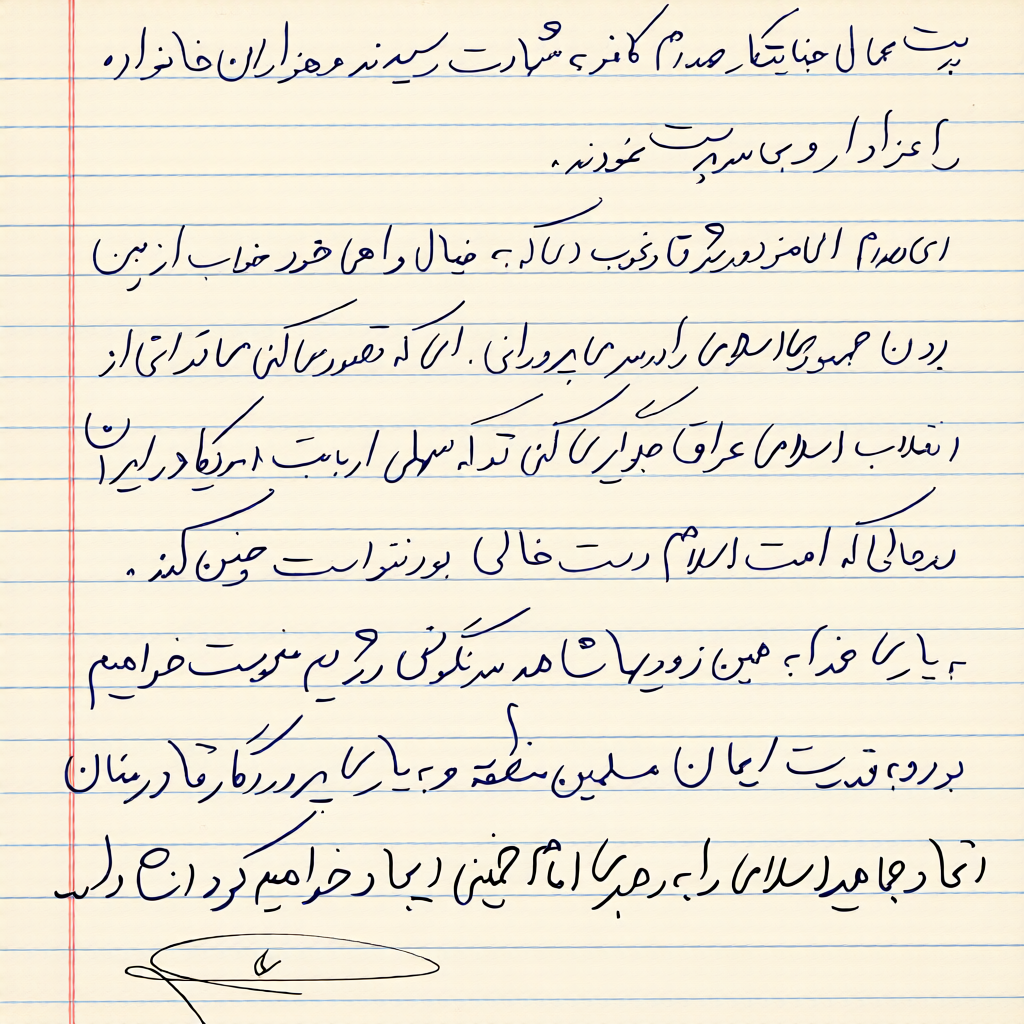 پست عمال جنایتکار صدام کافر به شهادت رسیدند و هزاران خانواده
را عزادار و بی سرپرست نمودند.
ای صدام ای که به خیال واهی خود خواب از بین
بردن جمهوری اسلامی را در سر می پرورانی. ای که تصور می کنی می توانی از
انقلاب اسلامی عراق جلوگیری کنی تو که اربابت امریکا در ایران
در حالی که امت اسلام دست خالی بود نتوانست چنین کند.
به یاری خدا به همین زودیها شاهد سرنگونی رژیم منحوست خواهیم
بود و به قدرت ایمان مسلمین منطقه و به یاری پروردگار قادر منان
اتحاد جماهیر اسلامی را به رهبری امام خمینی ایجاد خواهیم کرد انشاءالله